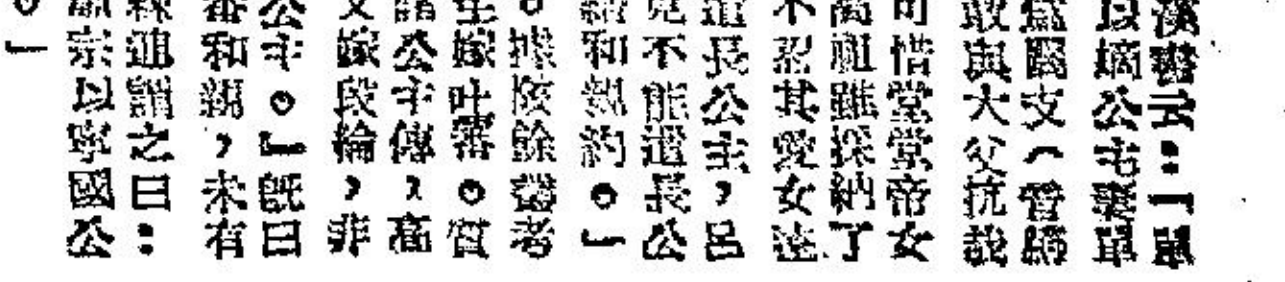 漢書云：「單
以嫡公主妻單
閼支（
敢與大父抗哉
可惜堂堂帝女
高祖雖採納了
不忍其愛女遠
遣長公主，呂
竟不能遣長公
結和親約。」
。據陔餘叢考
主嫁吐蕃。
諸公主傳，高
女嫁段綸，非
公主。』既曰
蕃和親，未有
通謂之曰：
肅宗以寧國公
。」